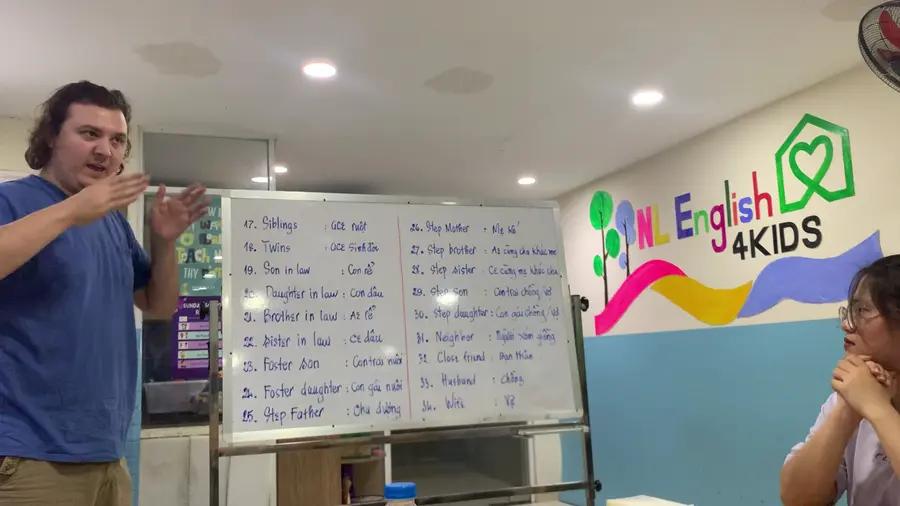 17. Siblings : ACE ruột
18. Twins : ACE Sinh đôi
19. Son in law : Con rể
20. Daughter in law : Con dâu
21. Brother in law : AE rể
22. Sister in law : CE dâu
23. Foster son : Con trai nuôi
24. Foster daughter : Con gái nuôi
25. Step Father : Cha dượng
26. Step Mother : Mẹ kế
27. Step brother : AE cùng cha khác mẹ
28. Step sister : CE cùng mẹ khác cha
29. Step Son : Con trai chồng/vợ
30. Step daughter : Con gái chồng/vợ
31. Neighbor : Người xóm giềng
32. Close friend : Bạn thân
33. Husband : Chồng
34. Wife : Vợ
NL English
4KIDS